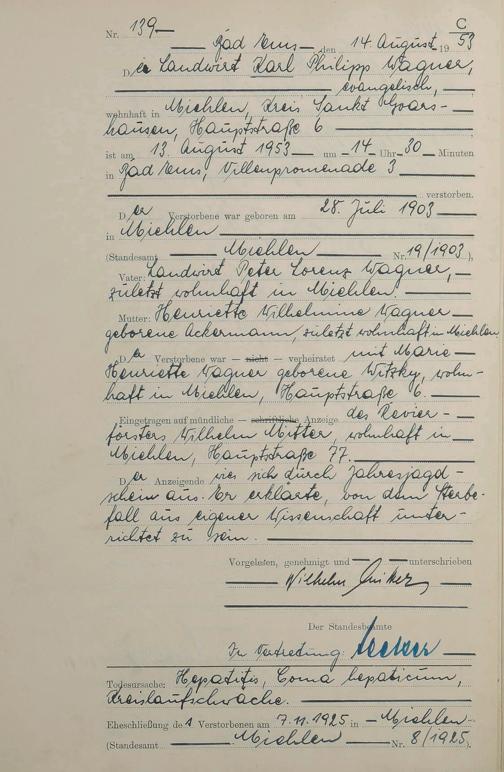 C
Nr. 139
Bad Ems, den 14. August 1953
Der Landwirt Karl Philipp Wagner,
evangelisch,
wohnhaft in Miehlen, Kreis Sankt Goars-
hausen, Hauptstraße 6
ist am 13. August 1953 um 14 Uhr 30 Minuten
in Bad Ems, Villenpromenade 3
verstorben.
Der Verstorbene war geboren am 28. Juli 1903
in Miehlen
(Standesamt Miehlen Nr. 19/1903),
Vater: Landwirt Peter Lorenz Wagner,
zuletzt wohnhaft in Miehlen.
Mutter: Henriette Wilhelmine Wagner
geborene Ackermann, zuletzt wohnhaft in Miehlen.
Der Verstorbene war — nicht — verheiratet mit Marie
Henriette Wagner geborene Witzky, wohn-
haft in Miehlen, Hauptstraße 6.
Eingetragen auf mündliche — schriftliche Anzeige des Revier-
försters Wilhelm Mitter, wohnhaft in
Miehlen, Hauptstraße 77.
Der Anzeigende wies sich durch Jahresjagd-
schein aus. Er erklärte, von dem Sterbe-
fall aus eigener Wissenschaft unter-
richtet zu sein.
Vorgelesen, genehmigt und unterschrieben
Wilhelm
Der Standesbeamte
In Vertretung:
Todesursache: Hepatitis, Coma hepaticum,
Kreislaufschwäche.
Eheschließung des Verstorbenen am 7.11.1925 in Miehlen
(Standesamt Miehlen Nr. 8/1925).